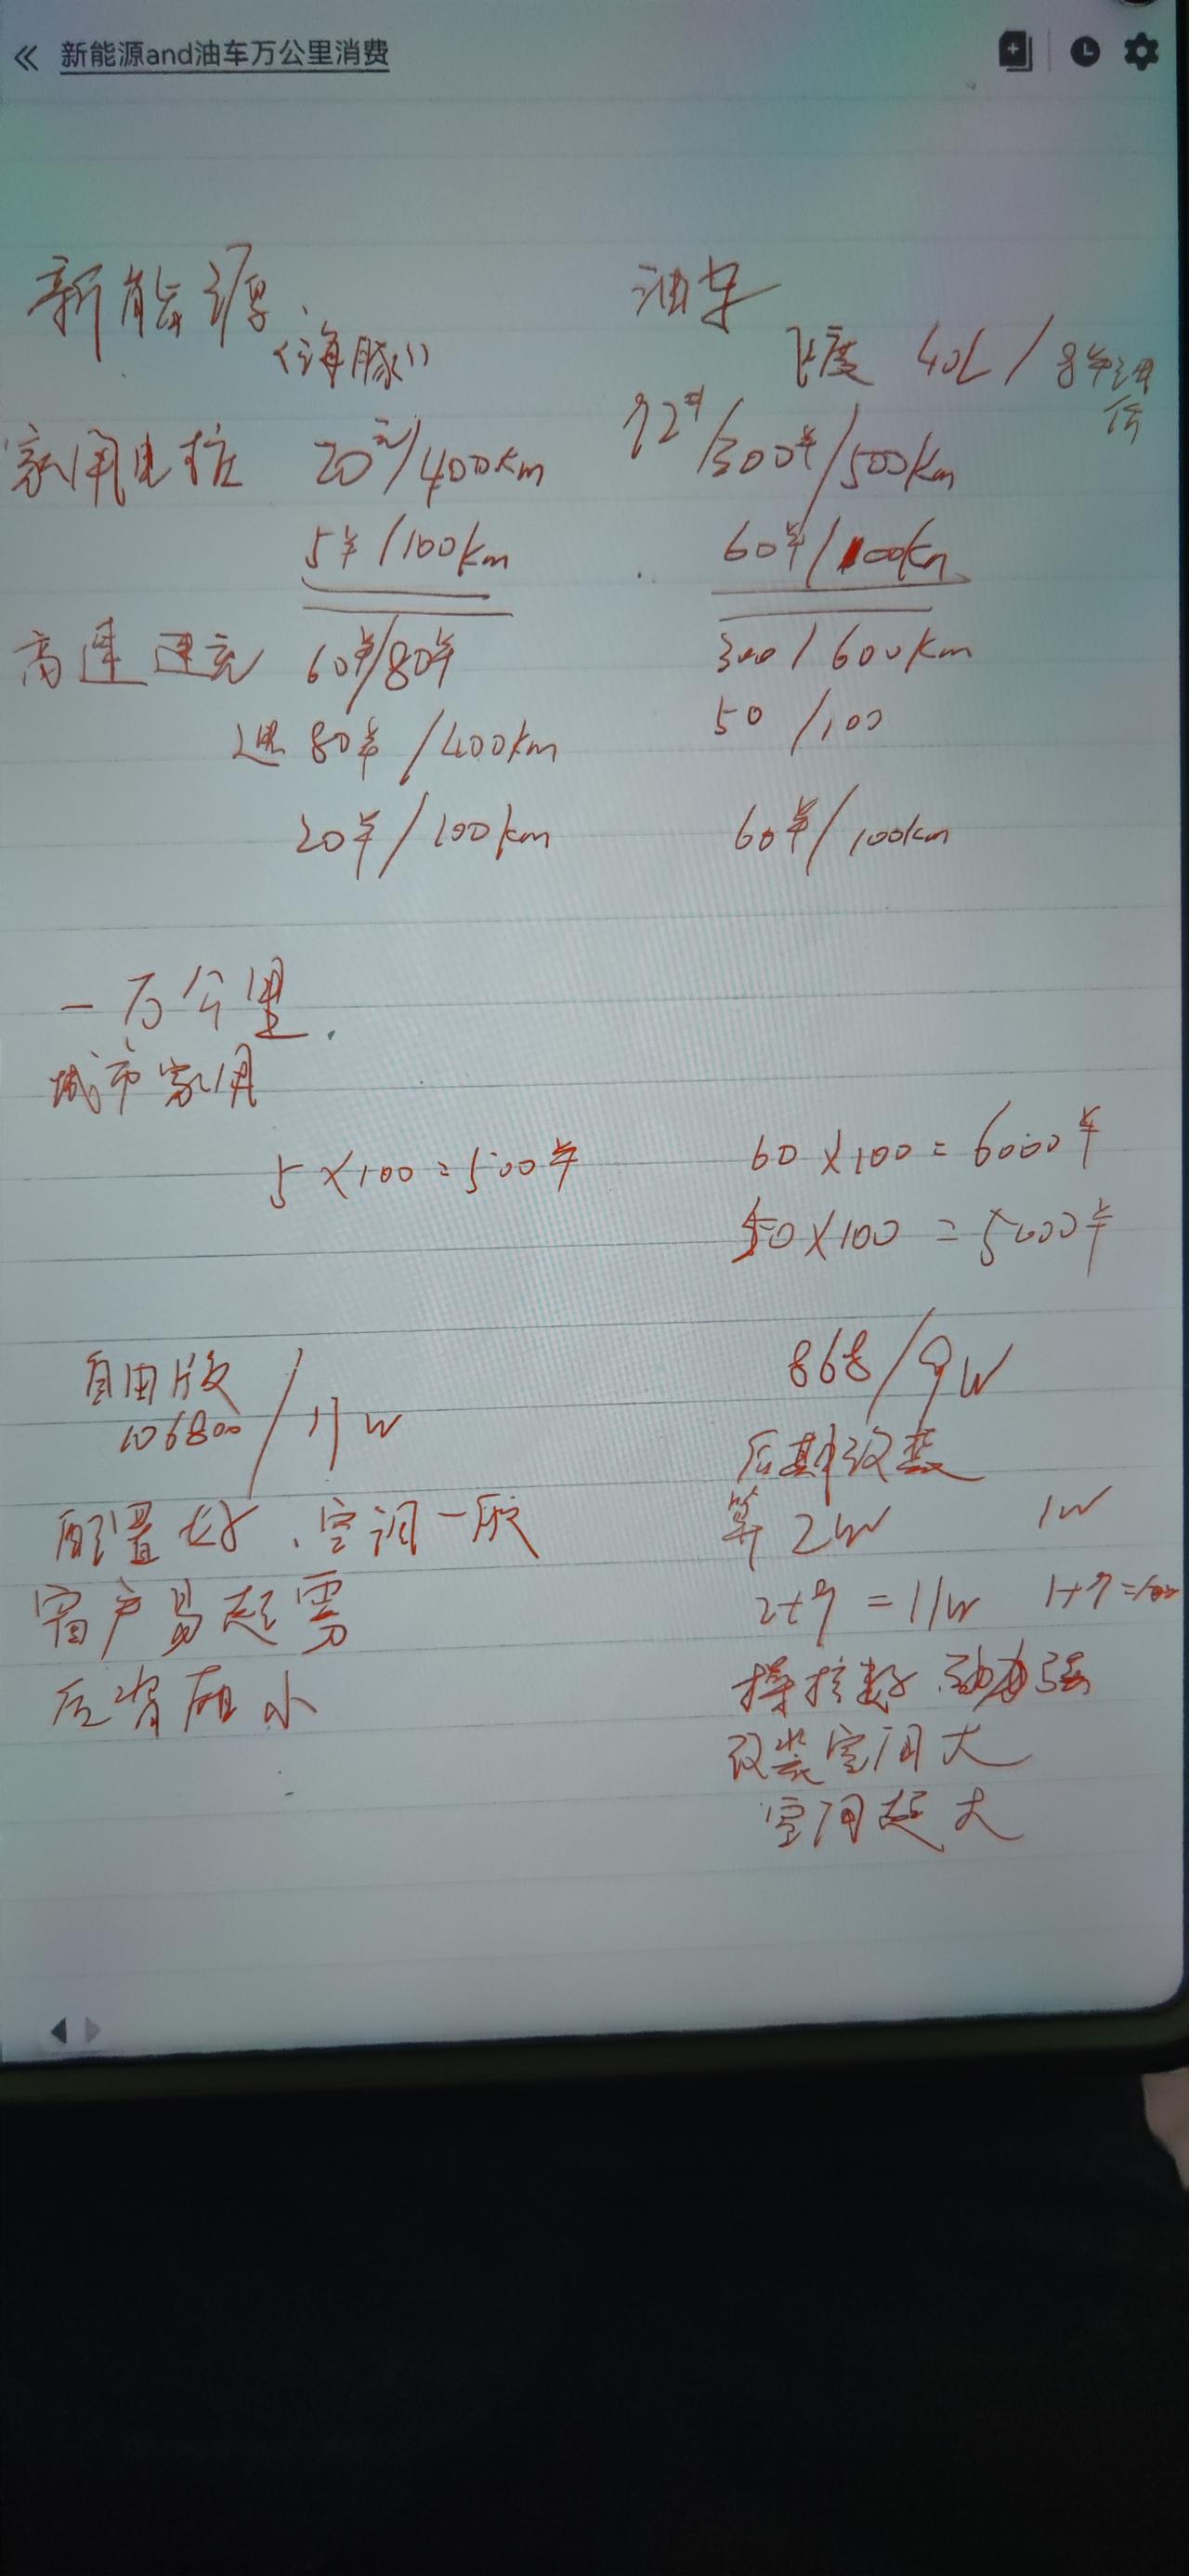 新能源and油车万公里消费
新能源
《海豚》
家用电桩 20元/400km
5¥/100km
高速 速充 60¥/80¥
80¥/400km
20¥/100km
油车
飞度 40L/8¥
92#/300¥/500km
60¥/100km
300/600km
50/100
60¥/100km
一万公里
城市家用
5×100=500¥
60×100=6000¥
50×100=5000¥
自由版
106800/11w
配置好、空调一般
窗户易起雾
后背厢小
868/9w
后期改装
算2w 1w
2+9=11w 1+9=
操控好 动力强
改装空间大
空间超大